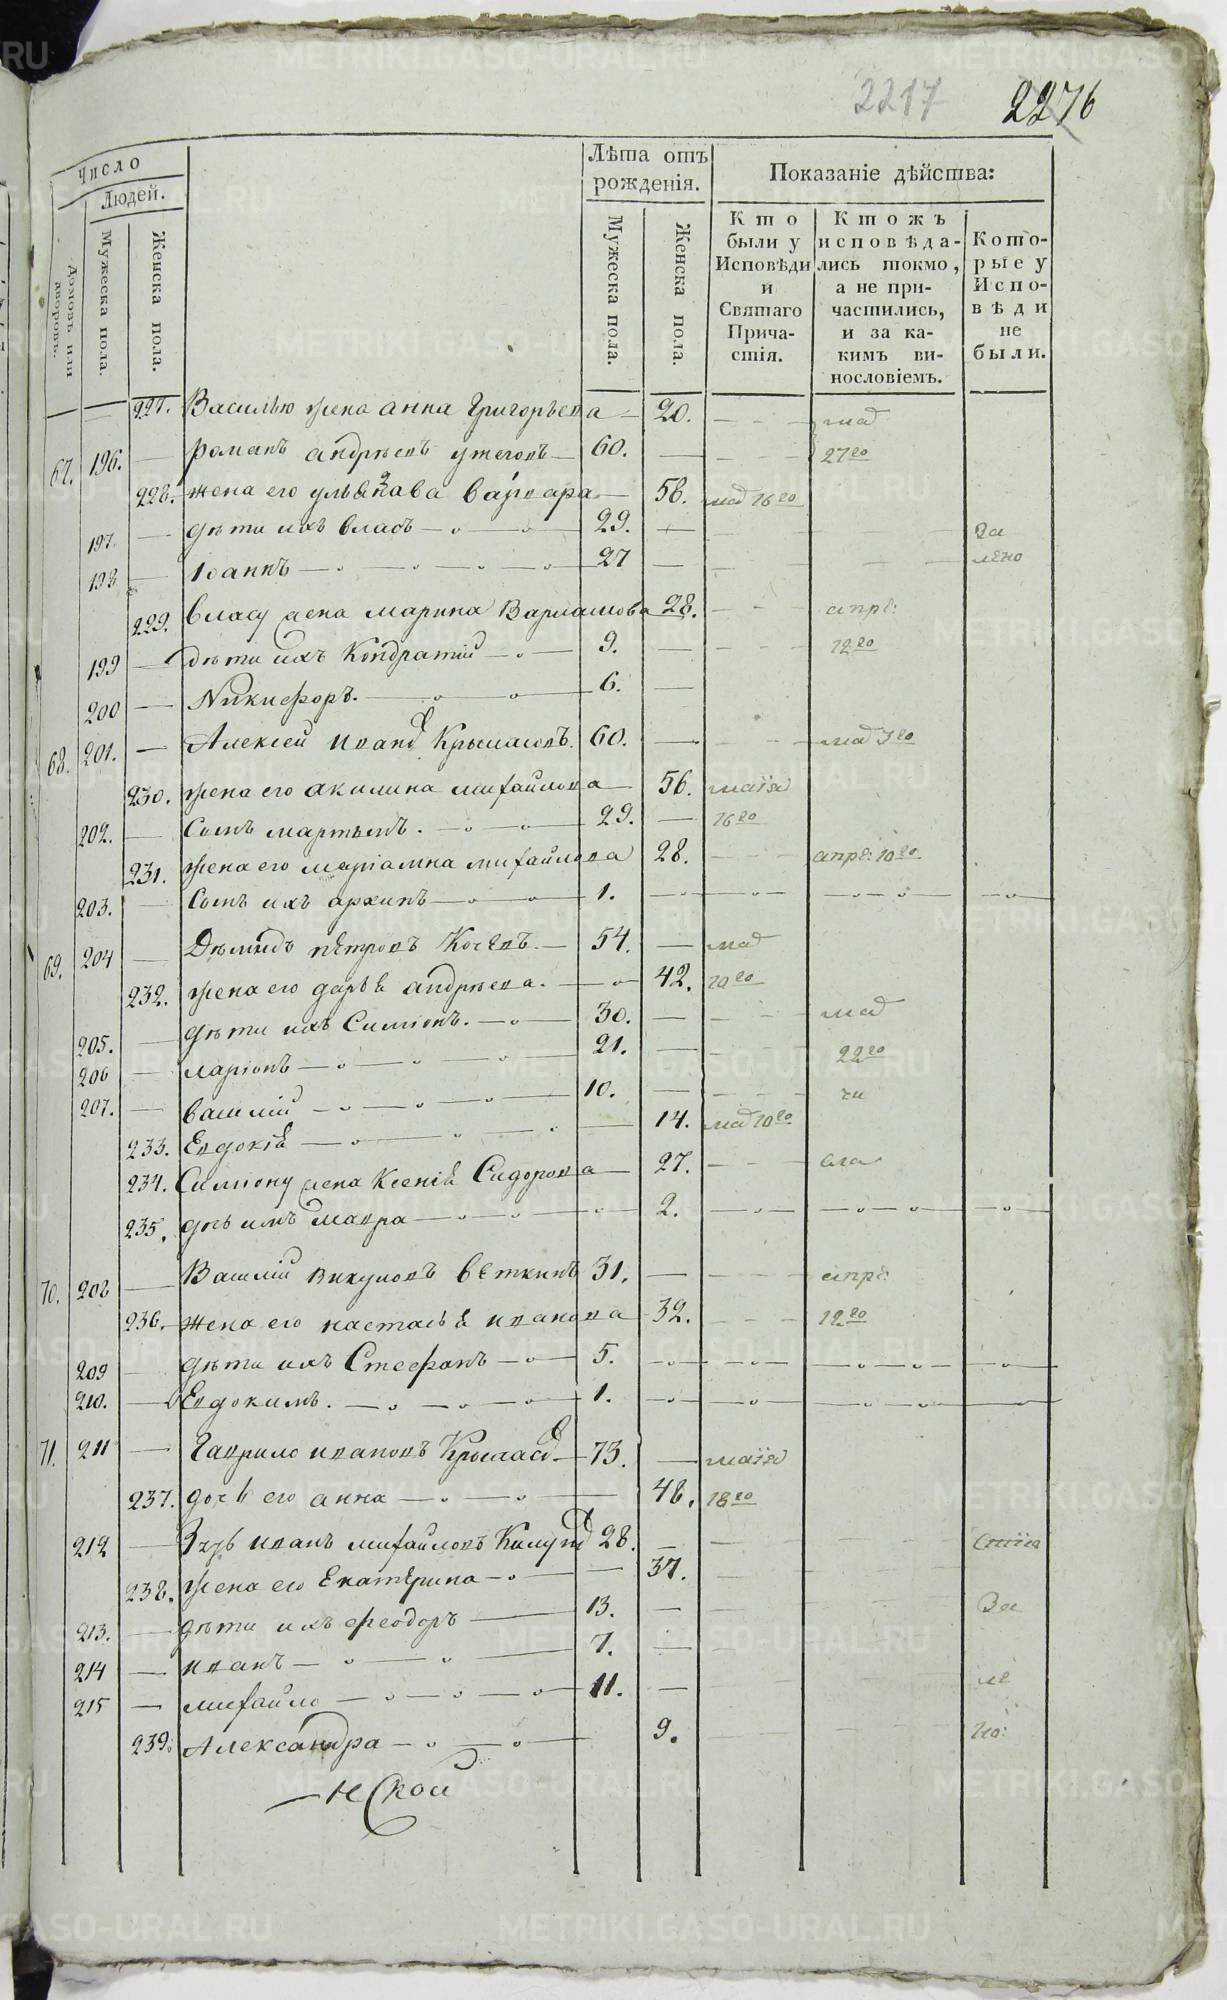 2217 2276
Число
Людей.
Домовъ или дворовъ.
Мужеска пола.
Женска пола.
Лѣта отъ рожденія.
Мужеска пола.
Женска пола.
Показаніе дѣйства:
Кто были у Исповѣди и Святаго Прича-стія.
Ктожъ исповѣда-лись токмо, а не при-частились, и за ка-кимъ ви-нословіемъ.
Кото-рые у Испо-вѣди не были.
227. Василью жена анна Григорьева 20. маія
67. 196. романъ андреевъ ужеговъ 60. 27го
228. жена его ульянава варвара 58. маія 16го
197. дѣти ихъ власъ 29. За
198 Іоаннъ 27 лѣно
229. власу жена марина Варламова 28. апрѣ:
199 дѣти ихъ Кондратій 9. 12го
200 Никифоръ. 6.
68. 201. Алексей иванъ Крыласовъ. 60. маія 3го
230. жена его акилина михайлова 56. маія
202. Сынъ мартынъ. 29. 16го
231. жена его маріамна михайлова 28. апрѣ: 10го
203. Сынъ ихъ архипъ 1.
69. 204 Демидъ петровъ Кочевъ. 54. маія
232. жена его дарья андреева. 42. 10го
205. дѣти ихъ Симіонъ. 30. маія
206 ларіонъ 21. 22го
207. василій 10. чи
233. Евдокія 14. маія 10го
234. Симіону жена Ксенія Сидорова 27. сла
235. дочь имъ мавра 2.
70. 208 Василій викуловъ веткинъ 31. апрѣ:
236. жена его настасья иванова 32. 12го
209 дѣти ихъ Стефанъ 5.
210. Евдокимъ. 1.
71. 211 Гаврило ивановъ Крыласовъ 73. маія
237. дочь его анна 48. 18го
212 Зять иванъ михайловъ 28.
238. жена его Екатерина 37.
213. дѣти ихъ феодоръ 13. За
214 иванъ 7.
215 михайло 11. лѣ
239. Александра 9. но: